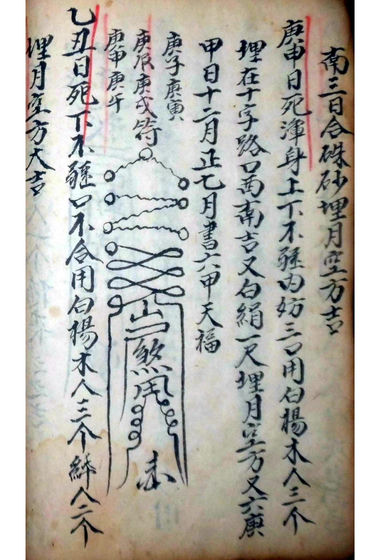 南三日合硃砂埋月空方吉
庚申日死渾身上下不強内妨三口用白楊木人三个
埋在十字路口西南吉又白絹一尺埋月空方又六庚
甲日十二月正乙月書六甲天福
庚子庚寅
庚辰庚戌符
庚申庚午
煞用
乙丑日死下不強口不合用白楊木人三个絆人二个
埋月空方大吉